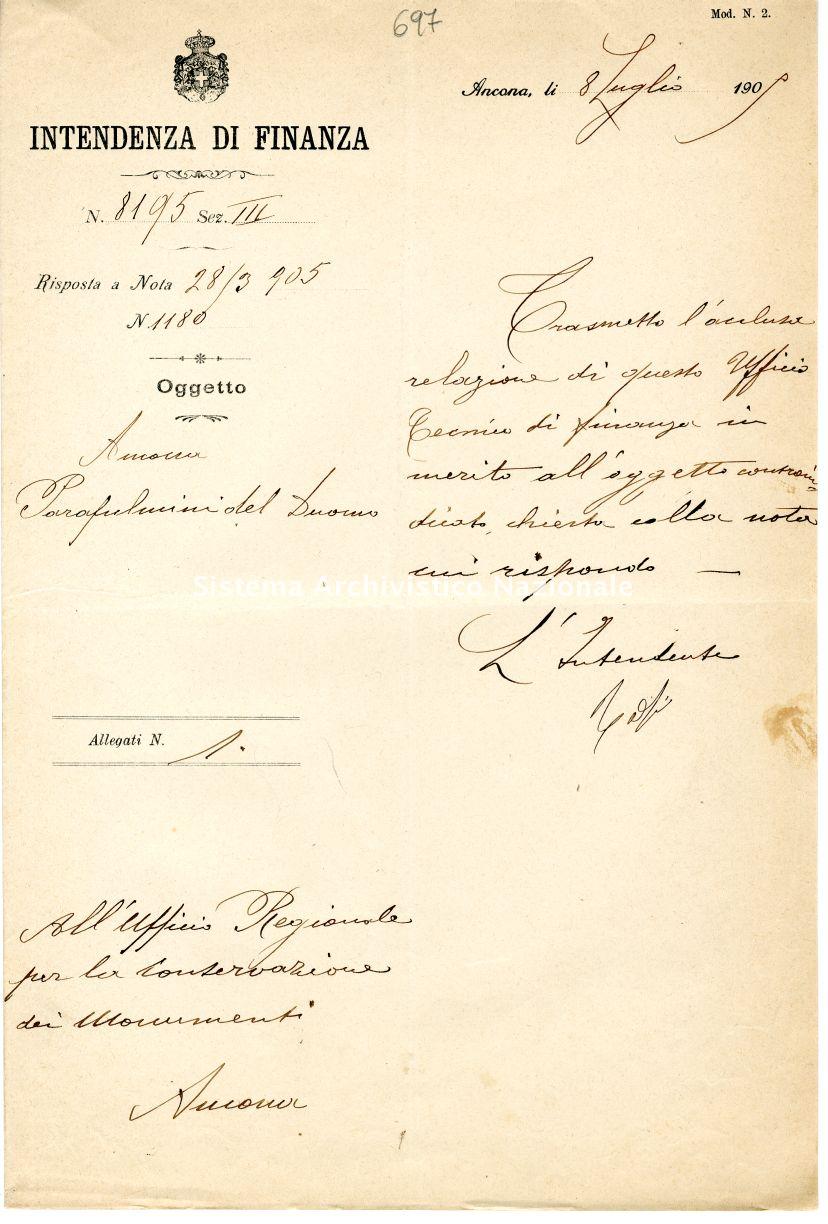 697
Mod. N. 2.
Ancona, li 8 Luglio 1905
INTENDENZA DI FINANZA
N. 8195 Sez. III
Risposta a Nota 28/3 905
N. 1180
Oggetto
Ancona
Parafulmini del Duomo
Trasmetto l'acclusa
relazione di questo Ufficio
Tecnico di finanza in
merito all'oggetto controin=
dicato, chiesta colla nota
cui rispondo —
L'Intendente
Allegati N. 1.
All'Ufficio Regionale
per la Conservazione
dei Monumenti
Ancona
Sistema Archivistico Nazionale